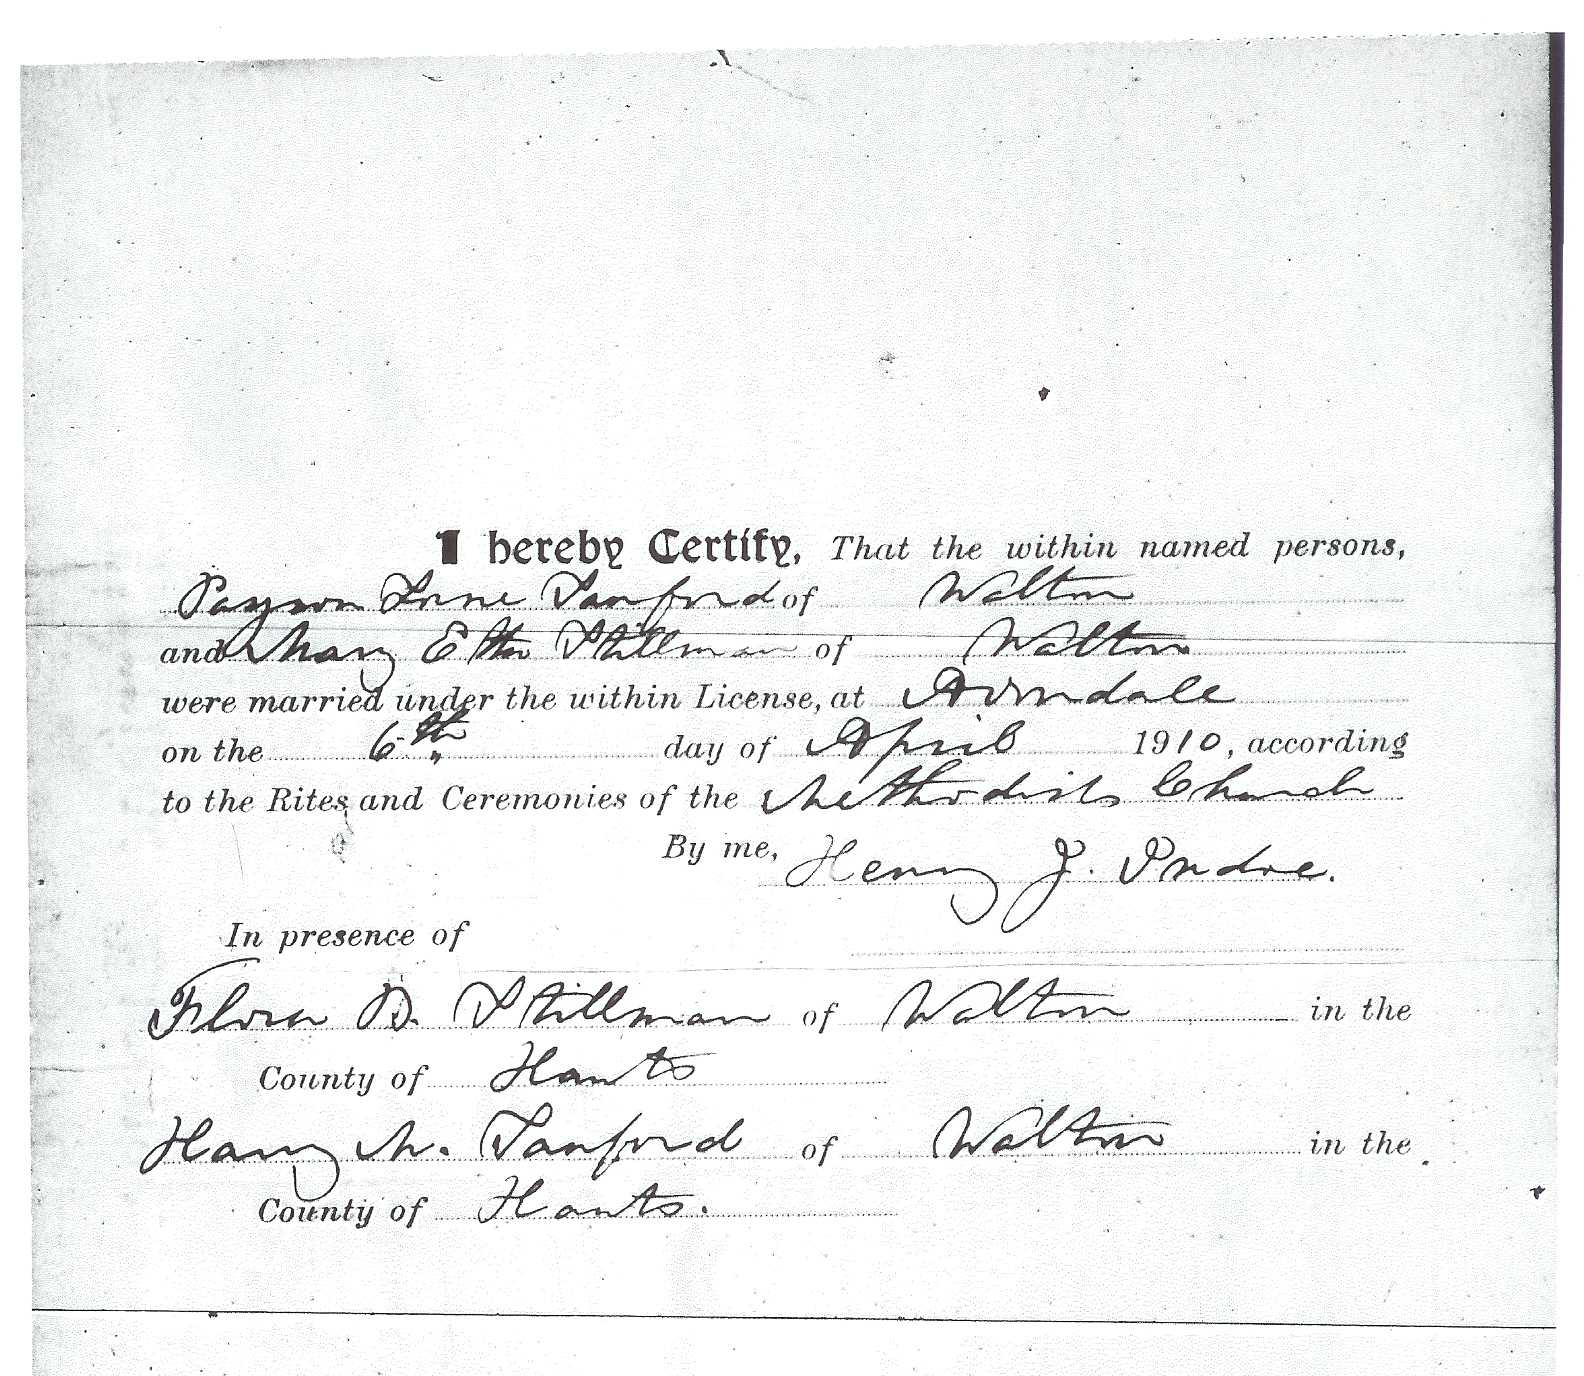 I hereby Certify, That the within named persons,
Payson Lorne Sanford of Walton
and Mary Etta Stillman of Walton
were married under the within License, at Avondale
on the 6th day of April 1910, according
to the Rites and Ceremonies of the Methodist Church
By me, Henry J. Indoe.
In presence of
Flora B. Stillman of Walton in the
County of Hants
Harry M. Sanford of Walton in the
County of Hants.